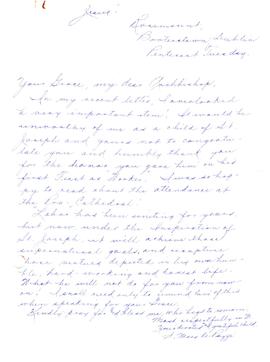 Jesus!
Rosemount,
Booterstown, Dublin
Pentecost Tuesday.
Your Grace, my dear Archbishop,
In my recent letter, I overlooked
a very important item. It would be
unworthy of me as a child of St.
Joseph and yours not to congratu-
late you and humbly thank you
for the honour you gave him on his
first Feast as "Worker". I was so hap-
py to read about the attendance at
the Pro-Cathedral!
Labour has been waiting for years,
but now under the inspiration of
St. Joseph it will achieve those
supernatural goals, and
virtues depicted in his own hum-
ble, hard-working and honest life.
What he will not do for you from now
on! I shall need only to remind him of this
when speaking for your Grace.
Kindly pray for & bless me, who begs to remain
Most respectfully in
devoted & grateful child